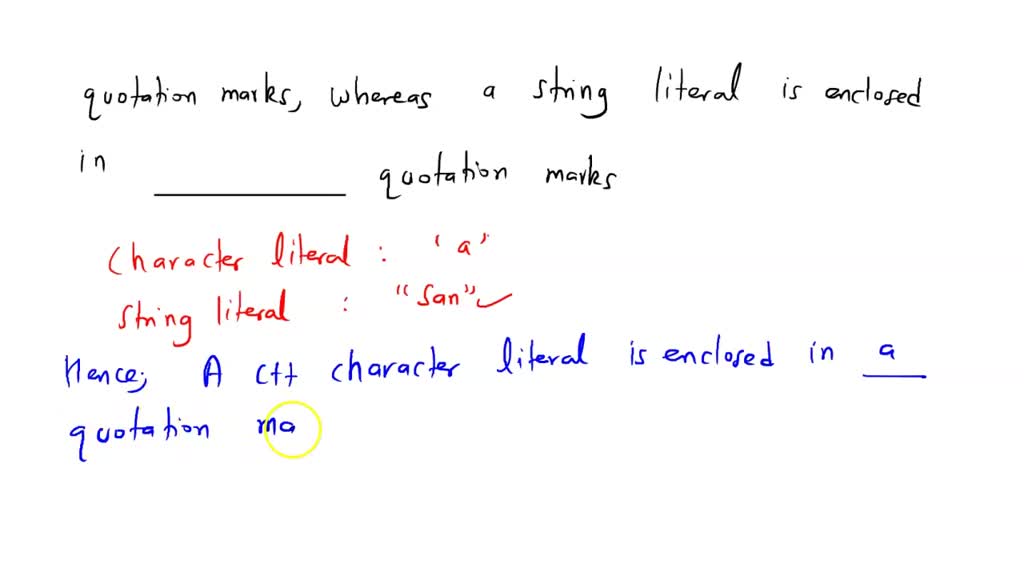 quotation marks, whereas a string literal is enclosed
in ________ quotation marks
Character literal : 'a'
String literal : "San"
Hence; A C++ character literal is enclosed in a
quotation ma